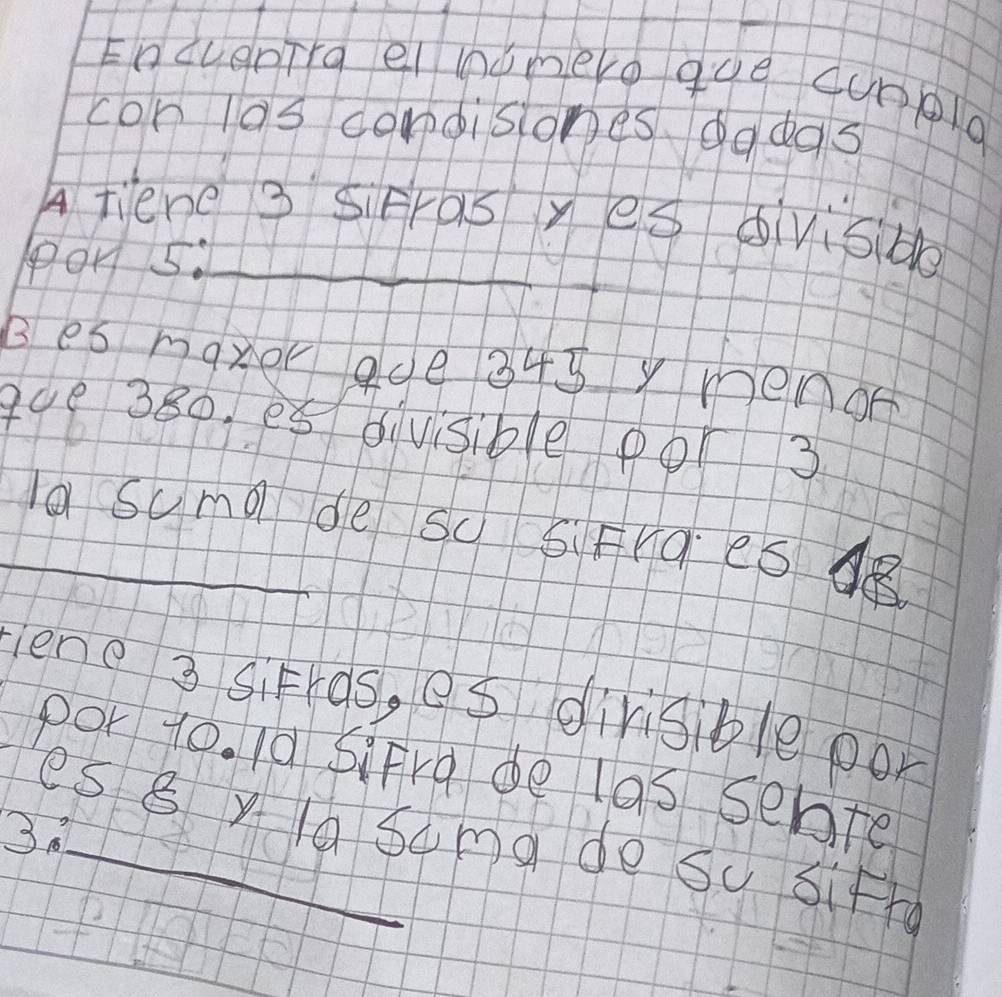 Encuentra el número que cunpla
con las condisiones dadas
A Tiene 3 sifras y es divisible
por 5:
B es mayor que 345 y menor
que 380. es divisible por 3
la suma de su sifra es 18.
tiene 3 sifras, es divisible por
por 10. la sifra de las sente
es 8 y la suma de su sifra
3: